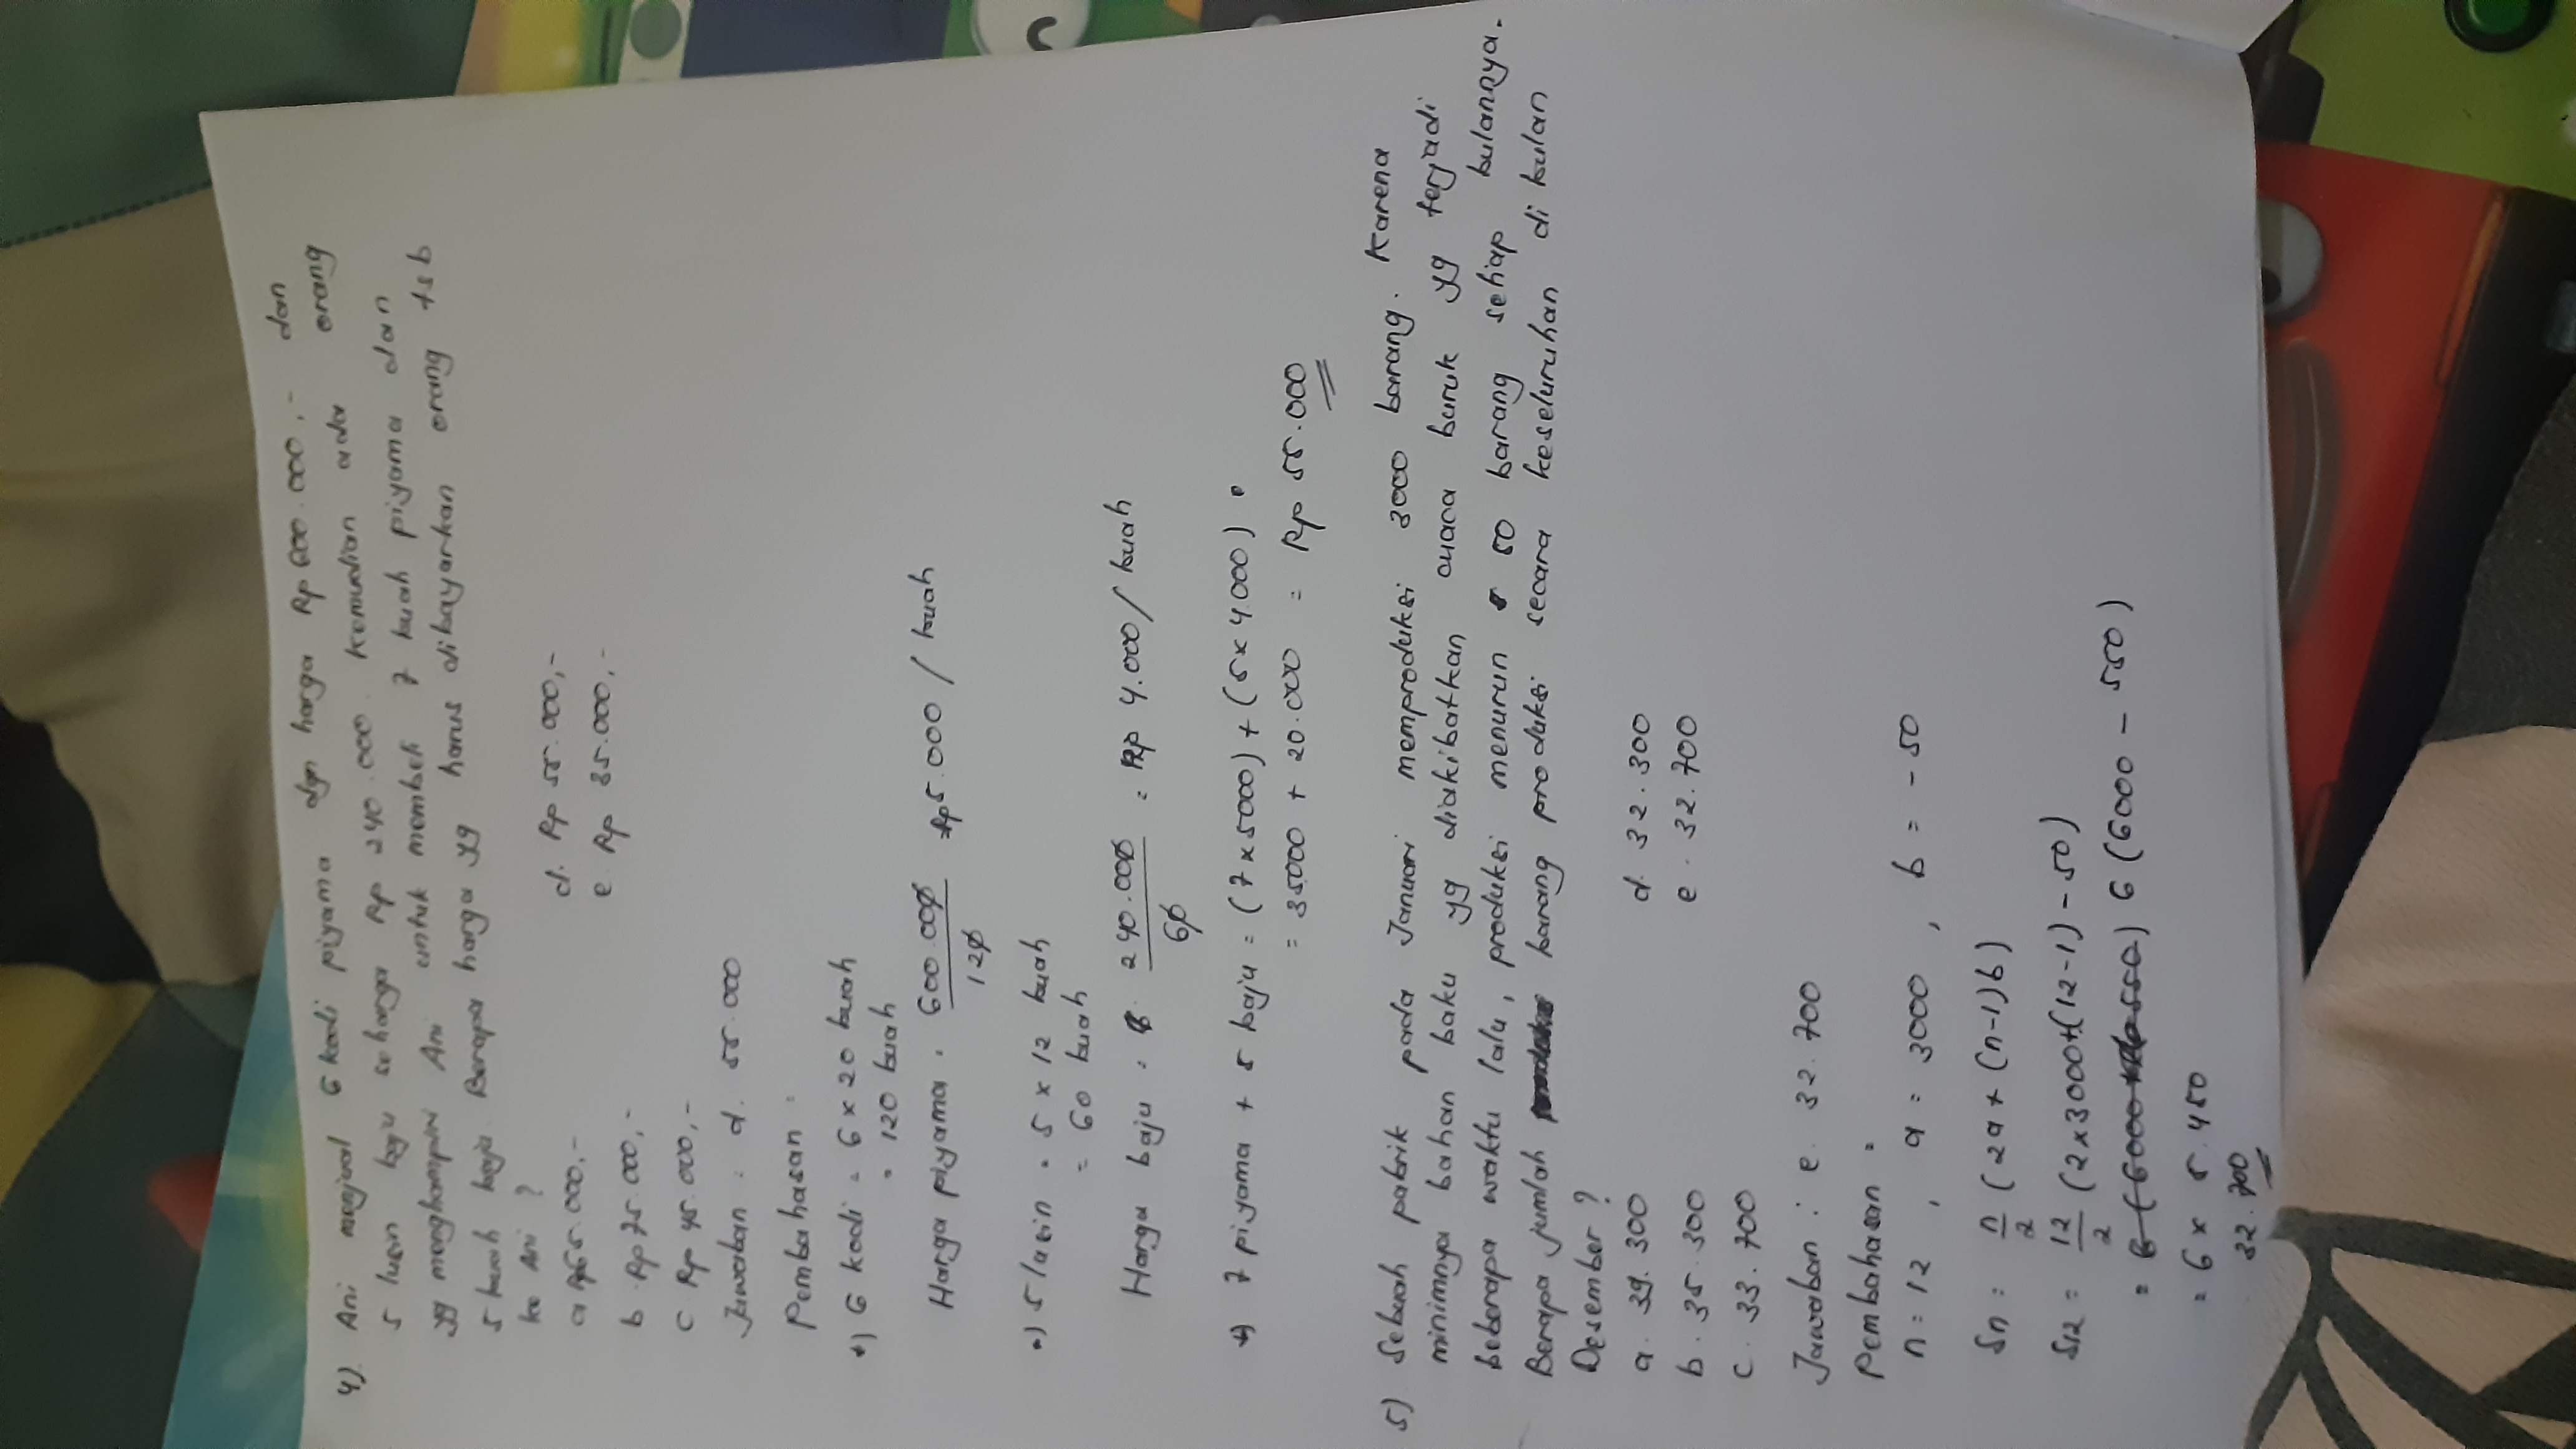 4). Ani menjual 6 kodi piyama dgn harga Rp 600.000,- dan
5 lusin baju seharga Rp 240.000. Kemudian ada orang
yg menghampiri Ani untuk membeli 7 buah piyama dan
5 buah baju. Berapa harga yg harus dibayarkan orang tsb
ke Ani ?
a Rp65.000,-
b. Rp 75.000,-
c Rp 45.000,-
d. Rp 55.000,-
e. Rp 35.000,-
Jawaban : d. 55.000
Pembahasan :
*) 6 kodi = 6 x 20 buah
= 120 buah
Harga piyama = 600.000 / 120 = Rp5.000 / buah
*) 5 lusin = 5 x 12 buah
= 60 buah
Harga baju = 240.000 / 60 = Rp 4.000 / buah
*) 7 piyama + 5 baju = (7 x 5000) + (5 x 4.000)
= 35000 + 20.000 = Rp 55.000
5) Sebuah pabrik pada Januari memproduksi 3000 barang. Karena
minimnya bahan baku yg diakibatkan cuaca buruk yg terjadi
beberapa waktu lalu, produksi menurun 50 barang setiap bulannya.
Berapa jumlah barang produksi secara keseluruhan di bulan
Desember ?
a. 39.300
b. 35.300
c. 33.700
d. 32.300
e. 32.700
Jawaban : e. 32.700
Pembahasan :
n = 12 , a = 3000 , b = - 50
Sn = n/2 (2a + (n-1)b)
S12 = 12/2 (2x3000+(12-1)-50)
= 6 (6000 - 550)
= 6 x 5.450
32.700